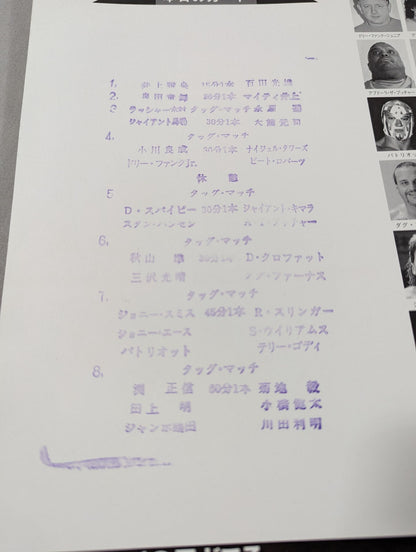 1. 井上雅央 15分1本 百田光雄
2. 泉田竜舞 30分1本 マイティ井上
3 ラッシャー木村 タッグ・マッチ 永源 遥
ジャイアント馬場 30分1本 大熊元司
4. タッグ・マッチ
小川良成 30分1本 ナイジェル・タワーズ
ドリー・ファンクJr. ピート・ロバーツ
休憩
5 タッグ・マッチ
D・スパイビー 30分1本 ジャイアント・キマラ
スタン・ハンセン ブッチャー
6. タッグ・マッチ
秋山 準 30分1本 D・クロファット
三沢光晴 ダグ・ファーナス
7. タッグ・マッチ
ジョニー・スミス 45分1本 R・スリンガー
ジョニー・エース S・ウイリアムス
パトリオット テリー・ゴディ
8. タッグ・マッチ
渕 正信 60分1本 菊地 毅
田上 明 小橋健太
ジャンボ鶴田 川田利明
ドリー・ファンク・ジュニア
アブドーラ・ザ・ブッチャー
パトリオ
ダグ・